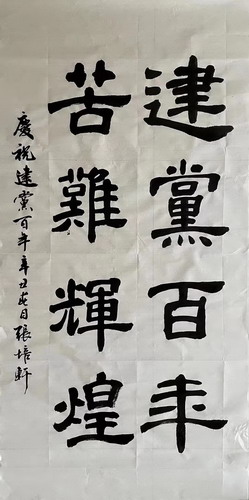 建黨百年
苦難輝煌
慶祝建黨百年辛丑春日張培軒